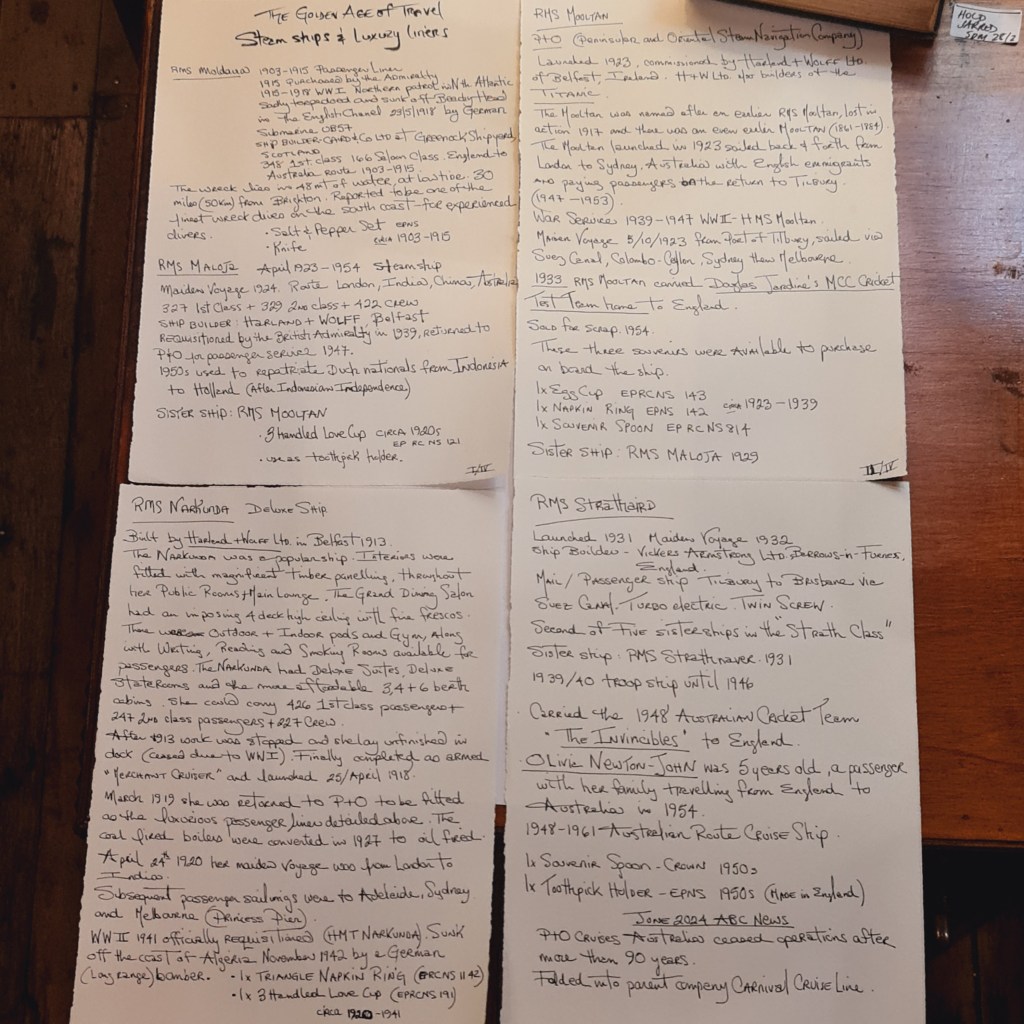 The Golden Age of Travel
Steam ships & Luxury liners
RMS Moldavia 1903-1915 Passenger Liner
1915 Purchased by the Admiralty
1915-1918 WWI Northern patrol in Nth Atlantic
Sadly torpedoed and sunk off Beachy Head
in the English Chanel 23/5/1918 by German
Submarine OB57
SHIP BUILDER-CAIRD & Co LTD at Greenock Shipyard,
SCOTLAND
348 1st. class 166 Saloon Class. England to
Australia Route 1903-1915.
The wreck lies in 48mt of water, at low tide. 30
miles (50km) from Brighton. Reported to be one of the
finest wreck dives on the south coast-for experienced
divers.
• Salt & Pepper Set EPNS
• Knife circa 1903-1915
RMS MALOJA April 1923-1954 Steamship
Maiden Voyage 1924. Route London, India, China, Australia
327 1st Class + 329 2nd class + 422 CREW
SHIP BUILDER: HARLAND + WOLFF, Belfast
REQUISITIONED by the British Admiralty in 1939, returned to
P+O for passenger service 1947.
1950s used to repatriate Duch nationals from Indonesia
to Holland (After Indonesian Independence)
SISTER SHIP: RMS MOOLTAN
• 3 Handled Love Cup CIRCA 1920s
EP RC NS 121
• use as toothpick holder.
I/IV
RMS MOOLTAN
P+O (Peninsular and Oriental Steam Navigation Company)
Launched 1923, commissioned by Harland + WOLFF Ltd.
of Belfast, Ireland. H+W Ltd. also builders of the
TITANIC.
The Mooltan was named after an earlier RMS Mooltan, lost in
action 1917 and there was an even earlier MOOLTAN (1861-1884)
The Mooltan launched in 1923 sailed back & forth from
London to Sydney, Australia with English emmigrants
AND paying passengers on the return to Tilbury.
(1947-1953)
War Service 1939-1947 WWII-HMS Mooltan.
Maiden Voyage 5/10/1923 from Port of Tilbury, sailed via
Suez Canal, Colombo-Ceylon, Sydney then Melbourne.
1933 RMS MOOLTAN carried Douglas Jardine's MCC Cricket
Test Team home to England.
Sold for scrap. 1954.
These three souvenirs were available to purchase
on board the ship.
1x Egg Cup EPRCNS 143
1x NAPKIN RING EPNS 142 circa 1923-1939
1x SOUVENIR SPOON EPRCNS 814
SISTER SHIP: RMS MALOJA 1929
II/IV
HOLD
JARROD
5PM 28/2
RMS NARKUNDA DELUXE SHIP
Built by Harland + Wolff Ltd. in Belfast 1913.
The NARKUNDA was a popular ship. Interiors were
fitted with magnificent timber panelling, throughout
her Public Rooms + Main Lounge. The Grand Dining Salon
had an imposing 4 deck high ceiling with fine frescos.
There were Outdoor + Indoor pools and Gym, Along
with Writing, Reading and Smoking Rooms available for
passengers. The NARKUNDA had Deluxe Suites, Deluxe
STATEROOMS and the more affordable 3,4+6 berth
cabins. She could carry 426 1st class passengers +
247 2nd class passengers + 227 CREW.
After 1913 work was stopped and she lay unfinished in
dock (ceased due to WWI). Finally completed as armed
"MERCHANT CRUISER" and launched 25/April 1918.
March 1919 she was returned to P+O to be fitted
as the luxurious passenger liner detailed above. The
coal fired boilers were converted in 1927 to oil fired.
April 24th 1920 her maiden Voyage was from London to
India.
Subsequent passenger sailings were to Adelaide, Sydney
and Melbourne (Princess Pier).
WW II 1941 officially REQUISITIONED (HMT NARKUNDA). SUNK
off the coast of Algeria November 1942 by a German
(Long range) bomber. • 1x TRIANGLE NAPKIN RING (EPRCNS 1142)
• 1x 3 Handled Love Cup (EPRCNS 191)
circa 1920-1941
RMS Strathaird
Launched 1931 Maiden Voyage 1932
Ship Builder - Vickers Armstrong Ltd, Barrows-in-Furness,
England.
Mail/Passenger ship Tilbury to Brisbane via
Suez Canal. Turbo electric. Twin Screw.
Second of Five sisterships in the "Strath Class"
Sister ship: RMS Strathnaver. 1931
1939/40 troop ship until 1946
Carried the 1948 Australian Cricket Team
"The Invincibles" to England.
OLIVIA NEWTON-JOHN was 5 years old, a passenger
with her family travelling from England to
Australia in 1954.
1948-1961-Australian Route Cruise Ship.
1x Souvenir Spoon - Crown 1950s
1x Toothpick Holder-EPNS 1950s (MADE in England)
JUNE 2024 ABC NEWS
P+O Cruises Australia ceased operations after
more than 90 years.
Folded into parent company CARNIVAL CRUISE LINE.